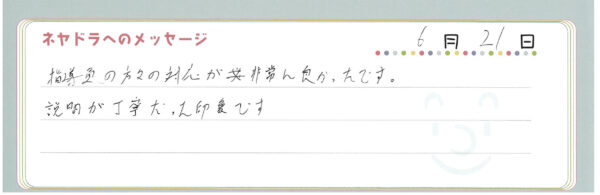 ネヤドラへのメッセージ 6月21日
指導員の方々の対応が非常に良かったです。
説明が丁寧だった印象です